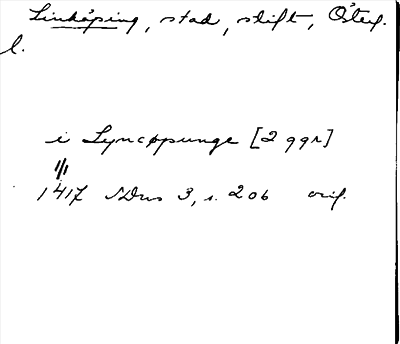 Linköping, stad, stift, Österg.
l.
i Lyncøpunge [2 ggr]
1/1
1417 SDns 3, s. 206 orig.